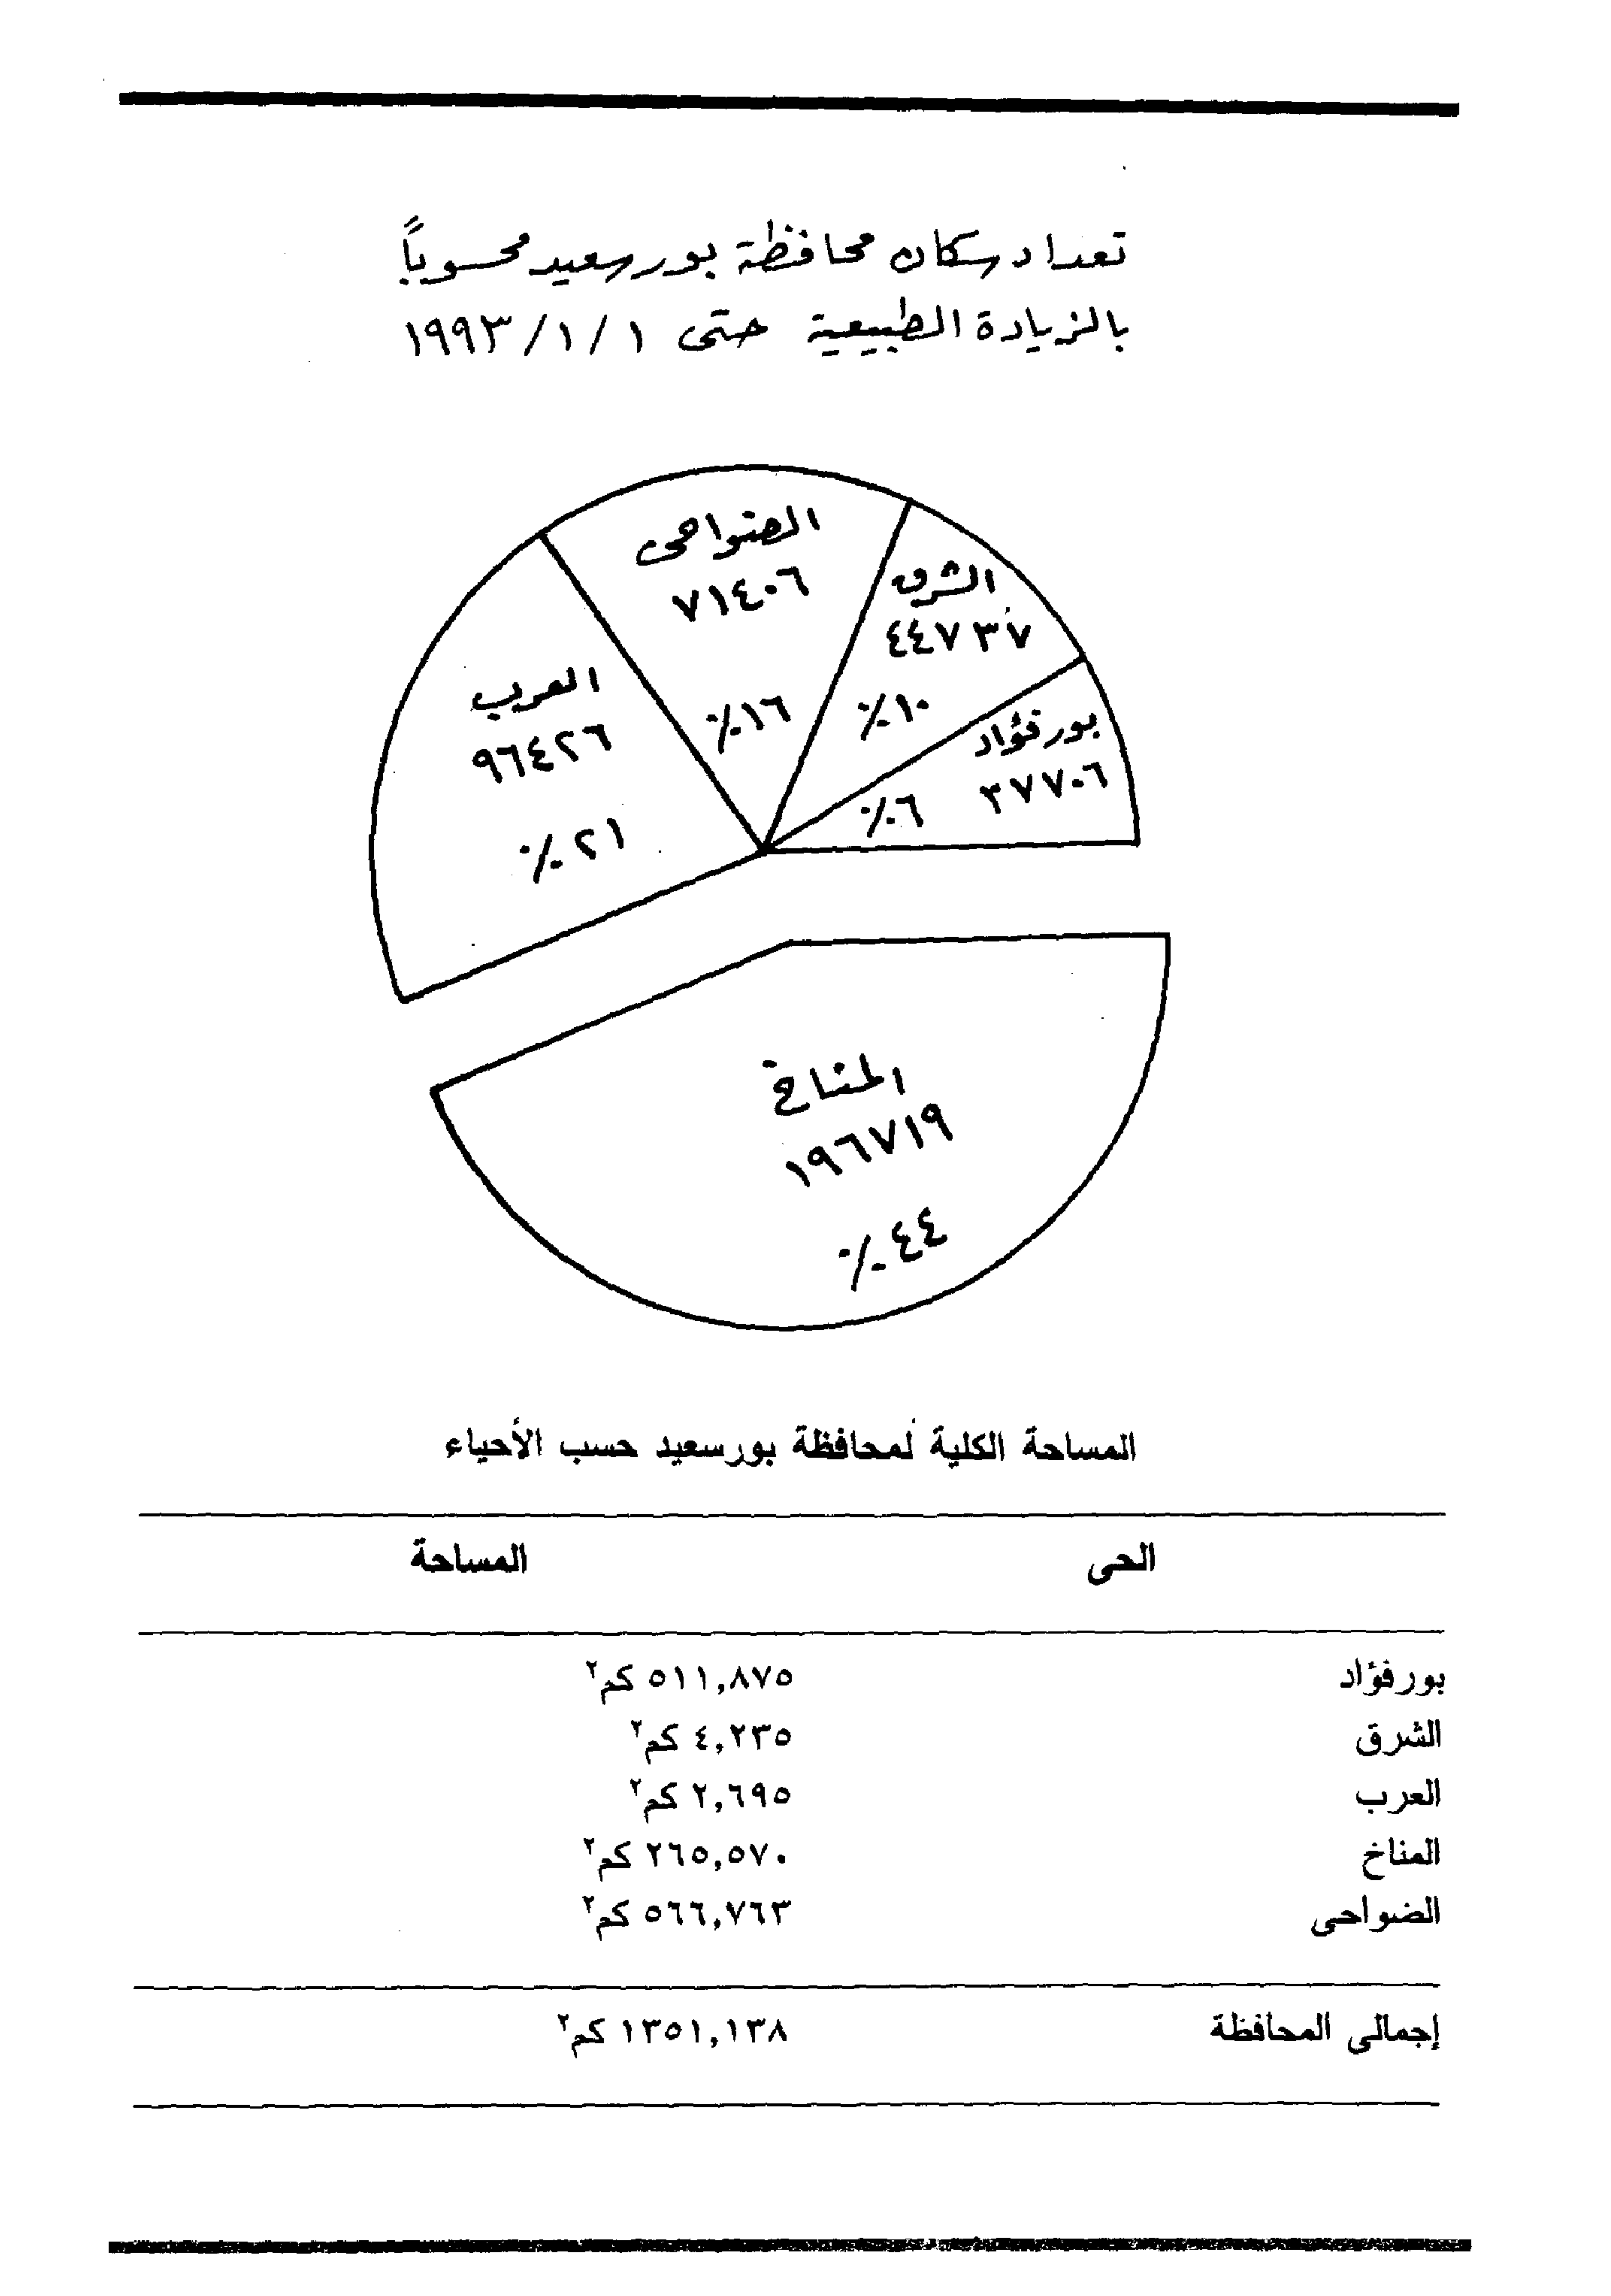 تعداد سكان محافظة بورسعيد محسوباً
بالزيادة الطبيعية حتى ١/١/١٩٩٣
الضواحى
٧١٤٠٦
١٦٪
الشرق
٤٤٧٣٧
١٠٪
بورفؤاد
٣٧٧٠٦
٦٪
العرب
٩٦٤٢٦
٢١٪
المناخ
١٩٦٧١٩
٤٤٪
المساحة الكلية لمحافظة بورسعيد حسب الأحياء
الحى المساحة
بورفؤاد ٥١١,٨٧٥ كم٢
الشرق ٤,٢٣٥ كم٢
العرب ٢,٦٩٥ كم٢
المناخ ٢٦٥,٥٧٠ كم٢
الضواحى ٥٦٦,٧٦٣ كم٢
إجمالى المحافظة ١٣٥١,١٣٨ كم٢